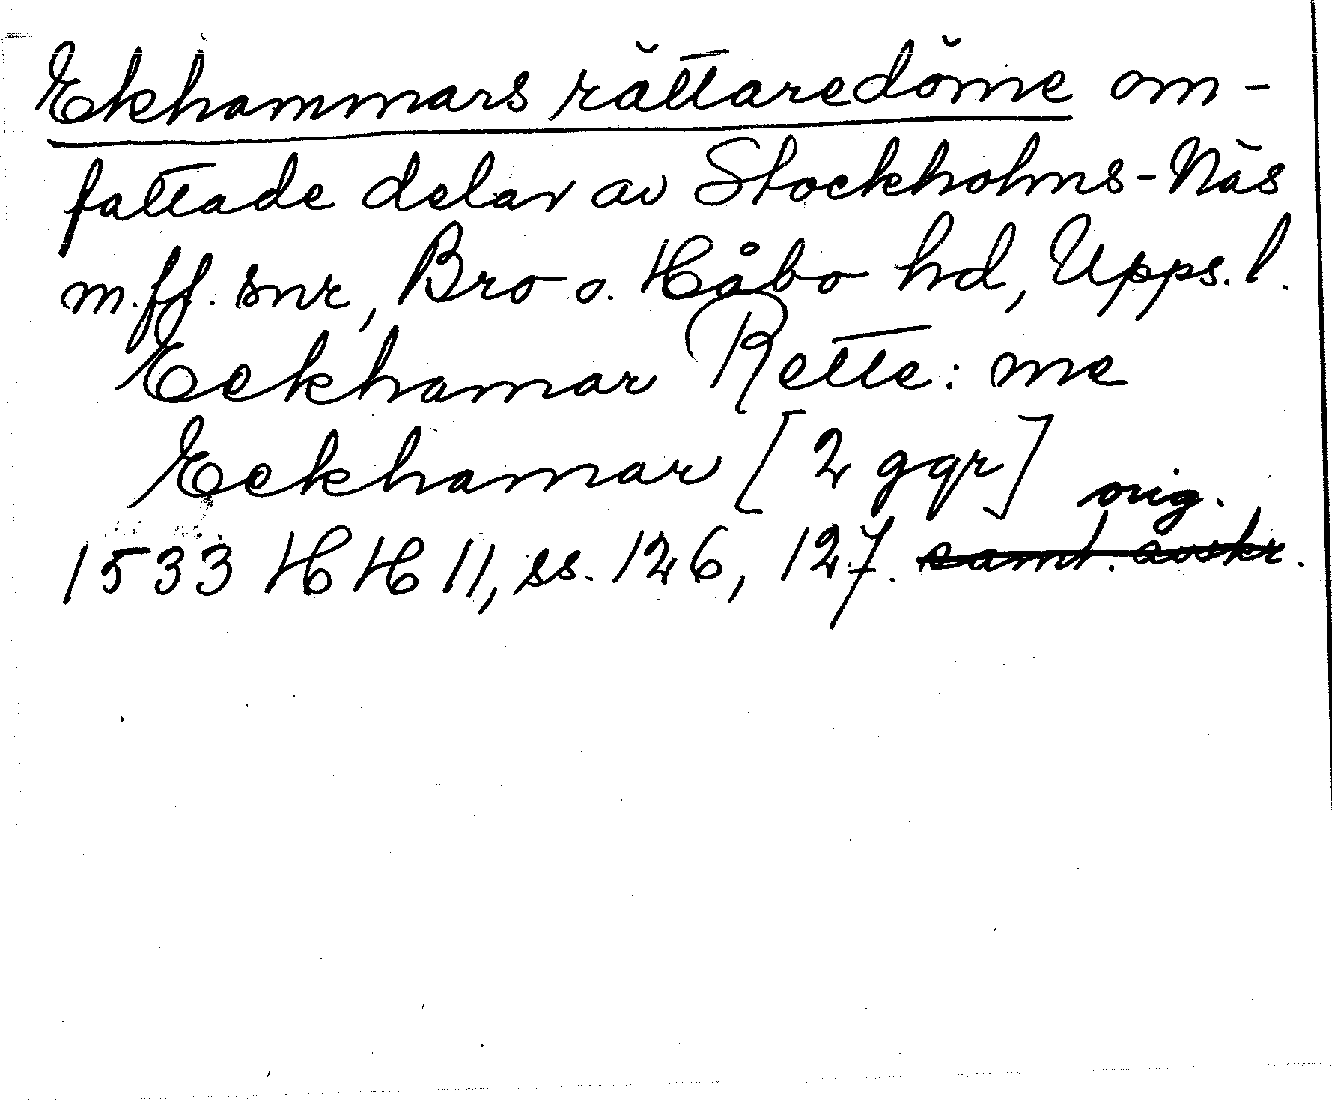 Ekhammars rättaredöme om-
fattade delar av Stockholms-Näs
m.fl. snr, Bro o. Håbo hd, Upps. l.
Eekhamar Rette: me
Eekhamar [2 ggr] orig.
1533 HH 11, ss. 126, 127. samt. avskr.